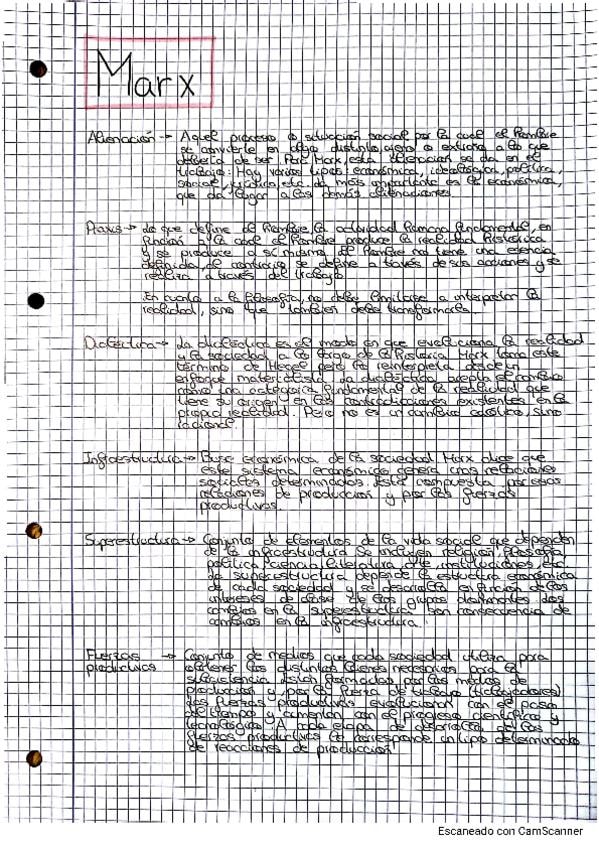 Marx
Alienación → Aquel proceso o situación social por la cual el hombre
se convierte en algo distinto, ajeno o extraño a lo que
debería de ser. Para Marx, esta alienación se da en el
trabajo. Hay varios tipos: económica, ideológica, política,
social, jurídica, etc. La más importante es la económica,
que da lugar a las demás alienaciones.
Praxis → Lo que define al hombre. La actividad humana fundamental, en
función a la cual el hombre produce la realidad histórica
y se produce a sí mismo. El hombre no tiene una esencia
definida, al contrario se define a través de sus acciones y se
realiza a través del trabajo.
En cuanto a la filosofía, no debe limitarse a interpretar la
realidad, sino que también debe transformarla.
Dialéctica → La dialéctica es el modo en que evoluciona la realidad
y la sociedad a lo largo de la historia. Marx toma este
término de Hegel pero la reinterpreta desde un
enfoque materialista. La dialéctica acepta el cambio
como una categoría fundamental de la realidad que
tiene su origen en las contradicciones existentes en la
propia realidad. Pero no es un cambio caótico, sino
racional.
Infraestructura → Base económica de la sociedad. Marx dice que
este sistema económico genera unas relaciones
sociales determinadas. Está compuesta por esas
relaciones de producción y por las fuerzas
productivas.
Superestructura → Conjunto de elementos de la vida social que dependen
de la infraestructura. Se incluyen religión, filosofía,
política, ciencia, literatura, arte, instituciones, etc.
La superestructura depende de la estructura económica
de cada sociedad y se desarrolla en función de los
intereses de clase de los grupos dominantes. Los
cambios en la superestructura son consecuencia de
cambios en la infraestructura.
Fuerzas → Conjunto de medios que cada sociedad utiliza para
productivas obtener los distintos bienes necesarios para la
subsistencia. Están formadas por los medios de
producción y por la fuerza de trabajo (trabajadores).
Las fuerzas productivas evolucionan con el paso
del tiempo y aumentan con el progreso científico y
tecnológico. A cada etapa de desarrollo de las
fuerzas productivas le corresponde un tipo determinado
de relaciones de producción.
Escaneado con CamScanner